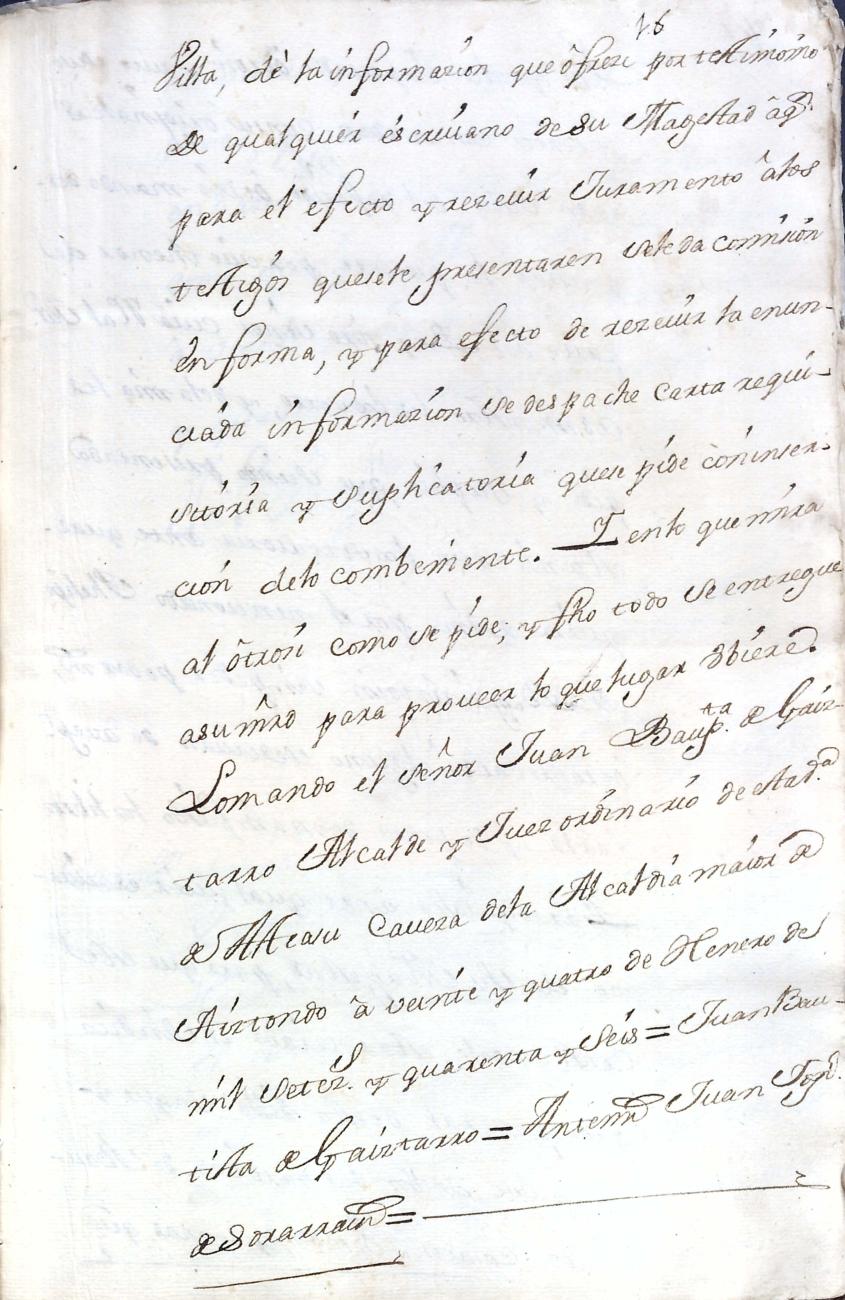 16
Villa, dè la informazion que ôfreze por testimonio
de qualquier éscrivano de su Magestad âq.n
para el efecto y rezevir Juramento âlos
testigos quesele presentaren sele da comision
ên forma, y para efecto de rezevir la enun-
ciada informazion se despache carta requi-
sitoria y suplicatoria quese pide con inser-
cion delo combeniente. Y en lo que mira
al ôtrosi como se pide, y fho todo se entregue
asu mrd para proveer lo que lugar ubiere.
Lo mando el señor Juan Baup.ta de Gaiz-
tarro Alcalde y Juez ordinario de esta d.ha
de Asteasu Cavera dela Alcaldia maior de
Aiztondo â veinte y quatro de Henero de
mil setez.s y quarenta y seis = Juan Bau-
tista de Gaiztarro = Antemi Juan Ign.o
de Sorarrain =